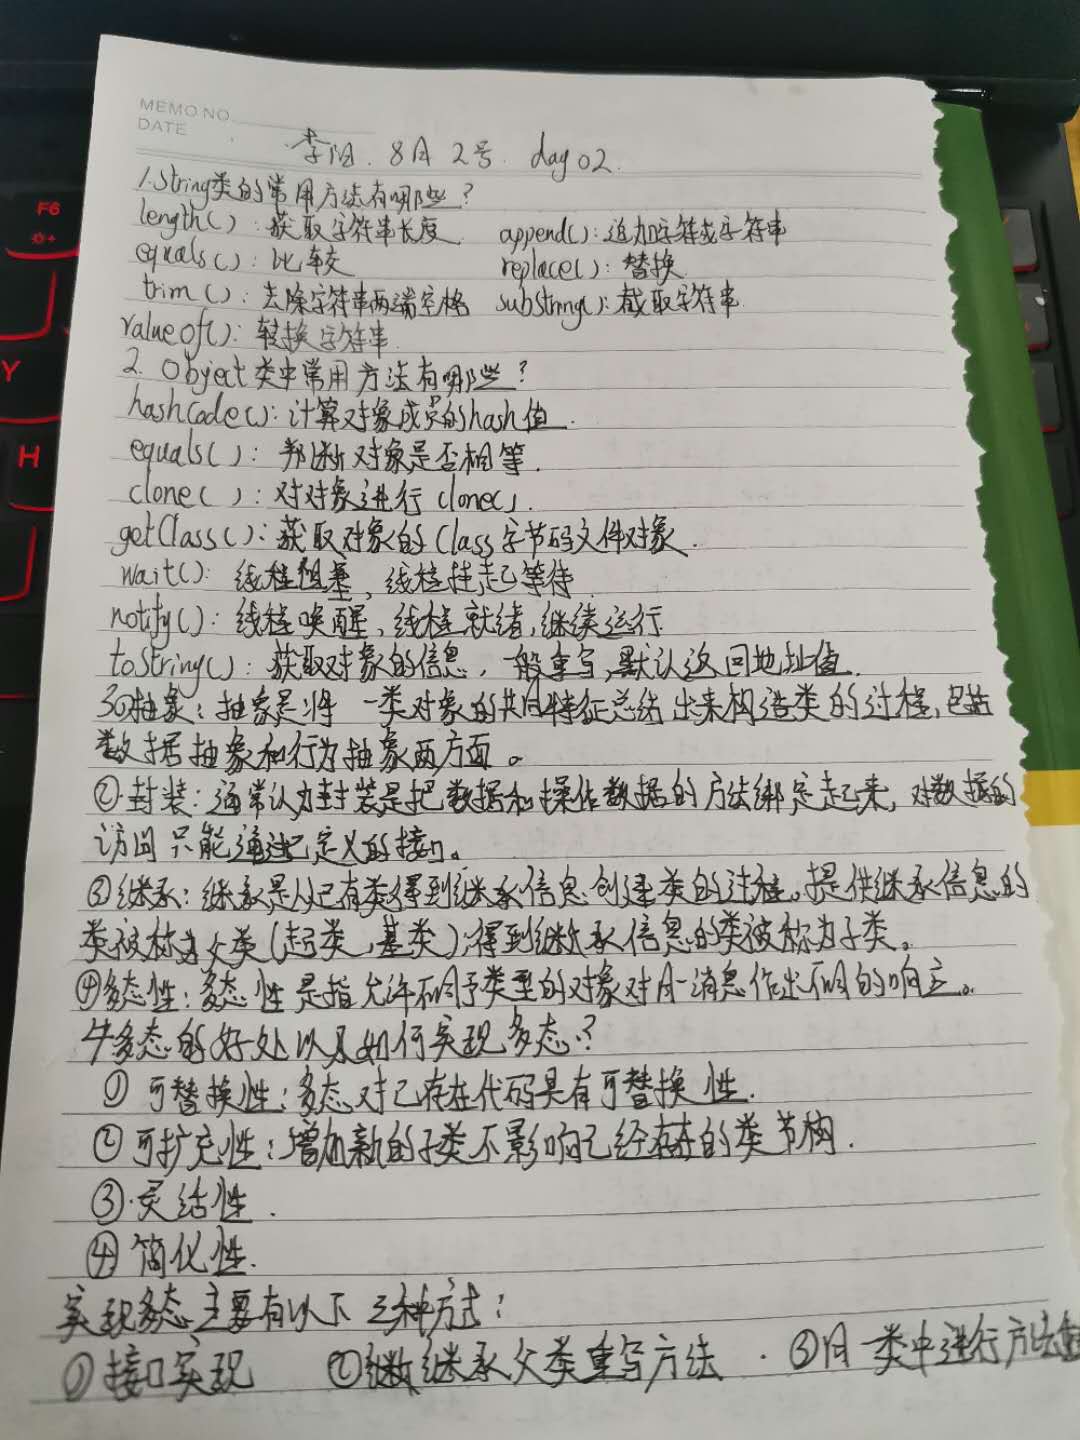 MEMO NO.
DATE
李阳. 8月2号. day02.
1.String类的常用方法有哪些?
length(): 获取字符串长度 append(): 追加字符或字符串
equals(): 比较 replace(): 替换
trim(): 去除字符串两端空格 substring(): 截取字符串
valueof(): 转换字符串
2. Object类中常用方法有哪些?
hashCode(): 计算对象成员的hash值.
equals(): 判断对象是否相等.
clone(): 对对象进行clone().
getClass(): 获取对象的Class字节码文件对象.
wait(): 线程阻塞, 线程挂起等待
notify(): 线程唤醒, 线程就绪, 继续运行
toString(): 获取对象的信息, 一般重写, 默认返回地址值.
3①抽象: 抽象是将一类对象的共同特征总结出来构造类的过程, 包括
数据抽象和行为抽象两方面。
②封装: 通常认为封装是把数据和操作数据的方法绑定起来, 对数据的
访问只能通过已定义的接口。
③继承: 继承是从已有类得到继承信息创建类的过程。提供继承信息的
类被称为父类(超类, 基类); 得到继承信息的类被称为子类。
④多态性: 多态性是指允许不同子类型的对象对同一消息作出不同的响应。
4多态的好处以及如何实现多态?
① 可替换性: 多态对已存在代码具有可替换性.
② 可扩充性: 增加新的子类不影响已经存在的类节构.
③.灵活性.
④ 简化性.
实现多态主要有以下三种方式:
①接口实现 ②继承父类重写方法. ③同一类中进行方法重
F6
Y
H